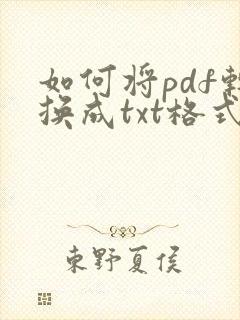 如何将pdf转
换成txt格式
東野夏侯